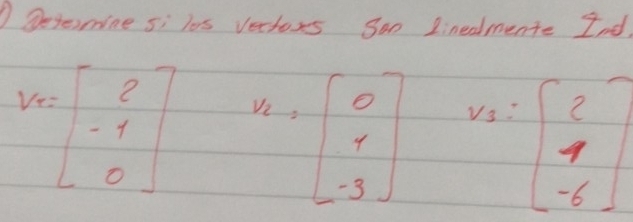 1) Determine si los vectores son linealmente Ind.
V1 = [ 2 -1 0 ] V2 = [ 0 1 -3 ] V3 = [ 2 1 -6 ]